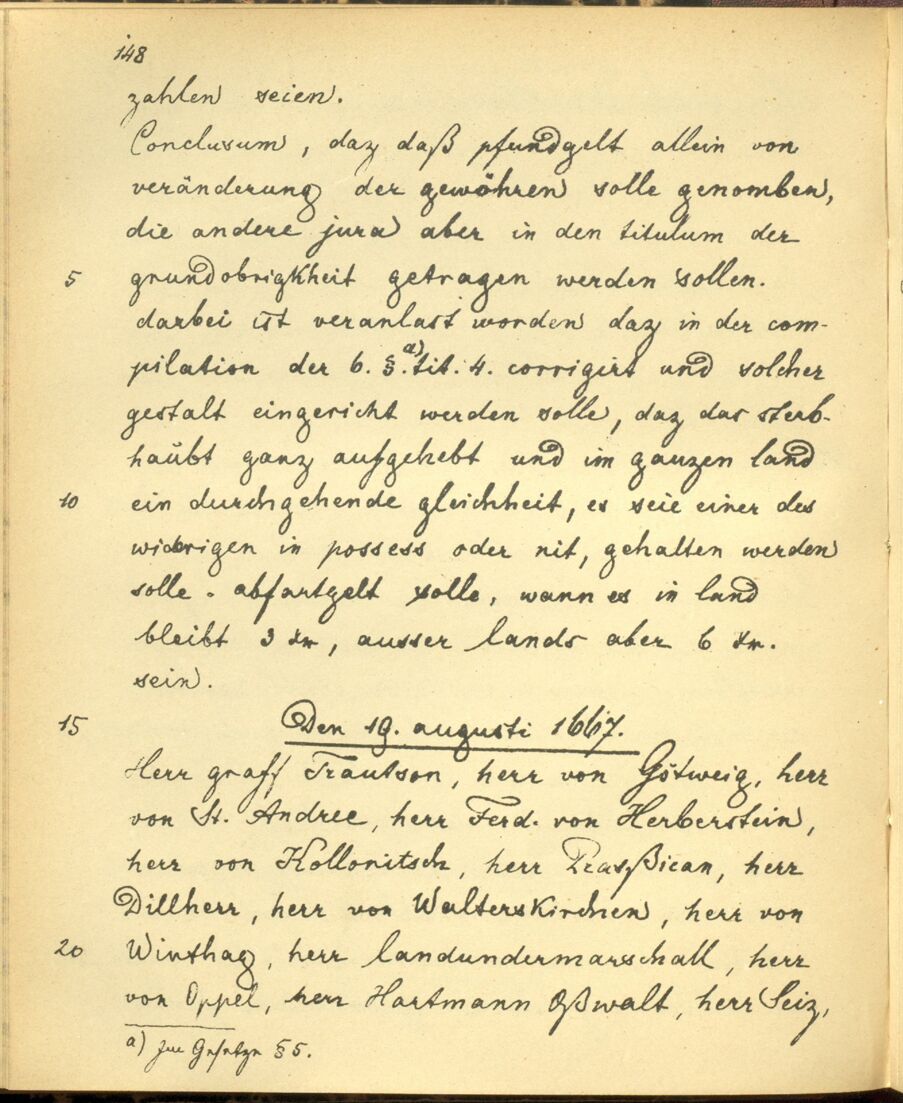 148
zahlen seien.
Conclusum, daz daß pfundgelt allein von
veränderung der gewöhren solle genomben,
die andere jura aber in den titulum der
5 grundobrigkheit getragen werden sollen.
darbei ist veranlast worden daz in der com-
pilation der 6. §.a) tit. 4. corrigirt und solcher
gestalt eingericht werden solle, daz das sterb-
haubt ganz aufgehebt und im ganzen land
10 ein durchgehende gleichheit, es seie einer des
widrigen in possess oder nit, gehalten werden
solle. abfartgelt solle, wann es in land
bleibt 3 xr, ausser lands aber 6 xr.
sein.
15 Den 19. augusti 1667.
Herr graff Trautson, herr von Götweig, herr
von St. Andree, herr Ferd. von Herberstein,
herr von Kollonitsch, herr, herr
Dillherr, herr von Walterskirchen, herr von
20 Winthag, herr landundermarschall, herr
von Oppel, herr Hartmann, herr Seiz,
a) Im Gesetze §5.